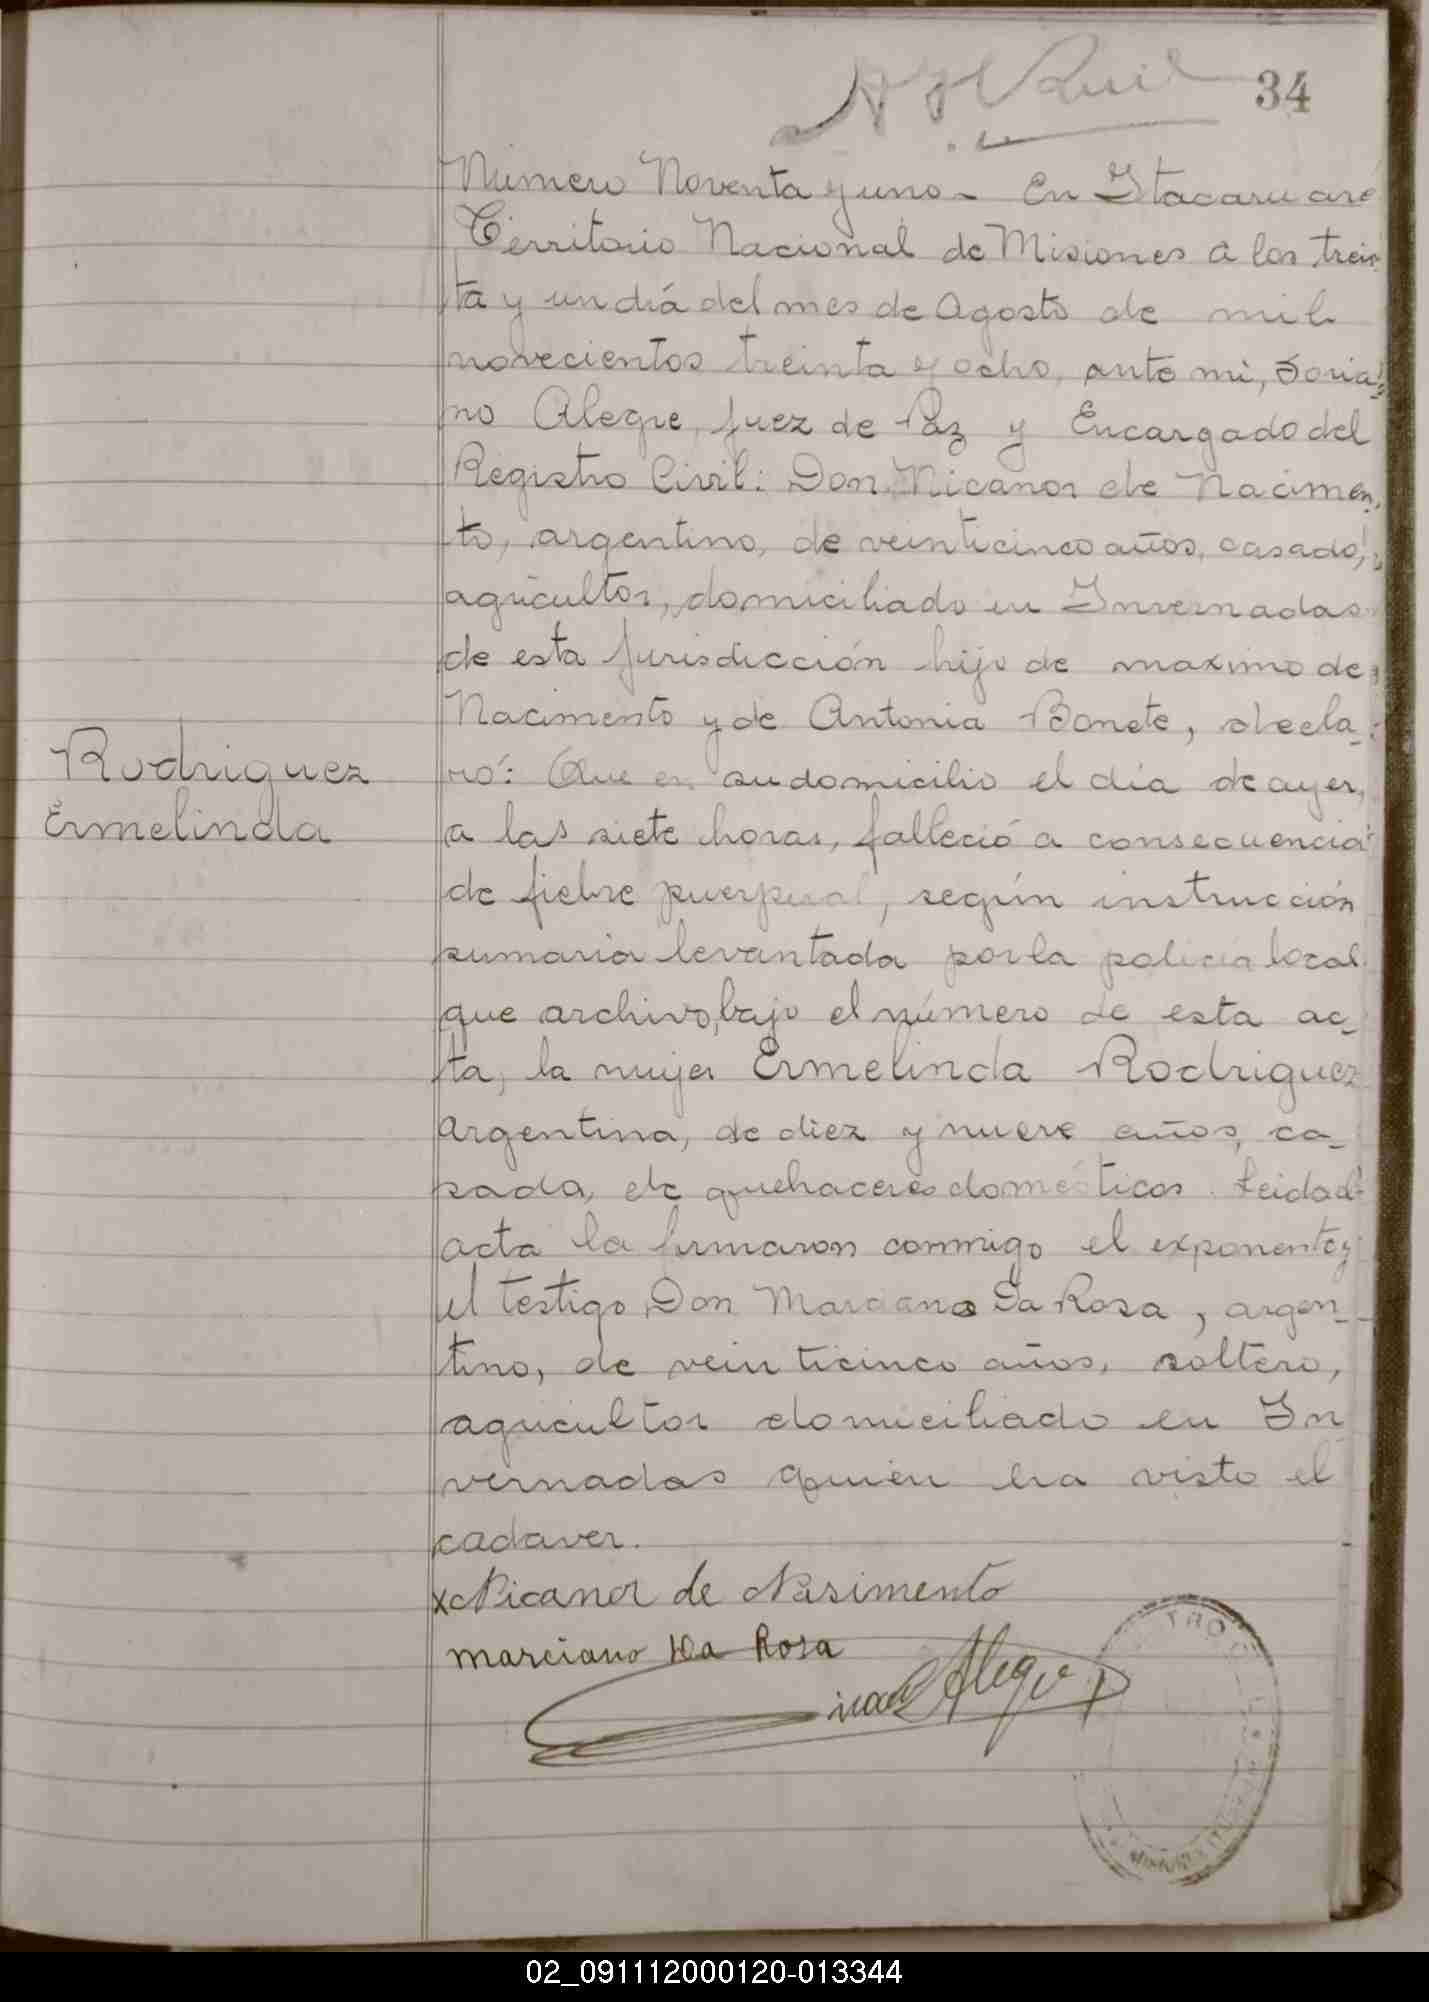 34
Número Noventa y uno - En Itacaruaré
Territorio Nacional de Misiones a los trein
ta y un día del mes de Agosto de mil
novecientos treinta y ocho, ante mi, Soria-
no Alegre, Juez de Paz y Encargado del
Registro Civil: Don Nicanor de Nacimen
to, argentino, de veinticinco años, casado,
agricultor, domiciliado en Invernadas
de esta jurisdicción hijo de maximo de
Nacimento y de Antonia Bonete, decla-
Rodriguez
Ermelinda
ró: Que en su domicilio el día de ayer,
a las siete horas, falleció a consecuencia
de fiebre puerperal, según instrucción
sumaria levantada por la policia local
que archivo, bajo el número de esta ac-
ta, la mujer Ermelinda Rodriguez
argentina, de diez y nueve años, ca-
sada, de quehaceres domésticos. Leida el
acta la firmaron conmigo el exponente y
el testigo Don Marciano Da Rosa, argen-
tino, de veinticinco años, soltero,
agricultor domiciliado en In
vernadas quien ha visto el
cadaver.
x Nicanor de Nasimento
marciano Da Rosa
Alegre
02_091112000120-013344